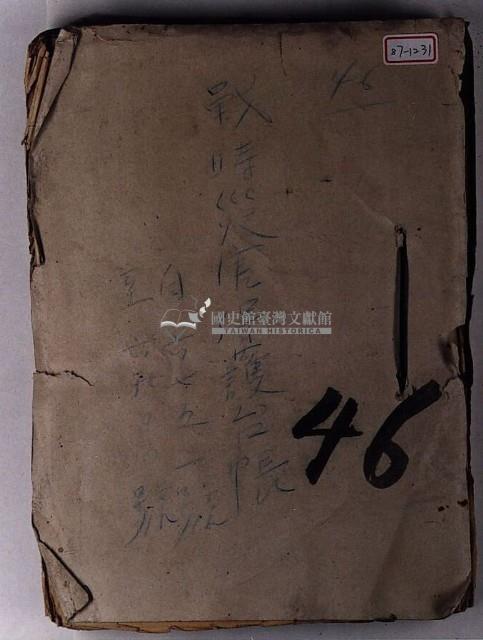 87-1231
46
戰時災害保護台帳
自 七五一號
至 號
46
國史館臺灣文獻館
TAIWAN HISTORICA